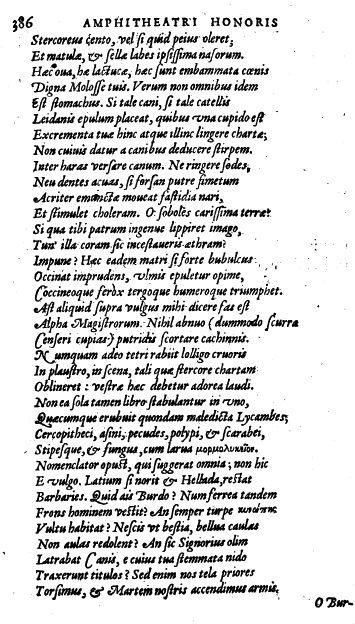 386 AMPHITHEATRI HONORIS
Stercoreus cento, vel si quid peius oleret;
Et matulæ, & sellæ labes ipsissima nasorum.
Hæc oua, hæ lactucæ, hæc sunt embammata cœnis
Digna Molosse tuis. Verum non omnibus idem
Est stomachus. Si tale cani, si tale catellis
Leidanis epulum placeat, quibus vna cupido est
Excrementa tuæ hinc atque illinc lingere chartæ;
Non cuiuis datur a canibus deducere stirpem.
Inter haras versare canum. Ne ringere sodes,
Neu dentes acuas, si forsan putre simetum
Acriter emunctæ moueat fastidia nari,
Et stimulet choleram. O soboles carissima terræ!
Si qua tibi patrum ingenue lippiret imago,
Tun' illa coram sic incestaueris æthram?
Impune? Hæc eadem matri si forte bubulcus
Occinat imprudens, vlmis epuletur opime,
Coccineoque ferox tergoque humeroque triumphet.
Ast aliquid supra vulgus mihi dicere fas est
Alpha Magistrorum. Nihil abnuo (dummodo scurra
Censeri cupias) putridis scortare cachinnis.
Numquam adeo tetri rabiit lolligo cruoris
In plaustro, in scena, tali quæ stercore chartam
Oblineret: vestræ hæc debetur adorea laudi.
Non ea sola tamen libro stabulantur in vno,
Quæcumque erubuit quondam maledicta Lycambes;
Cercopitheci, asini, pecudes, polypi, & scarabei,
Stipesque, & fungus, cum larua μορμολυκεῖον.
Nomenclator opust, qui suggerat omnia; non hic
E vulgo. Latium si norit & Hellada, restat
Barbaries. Quid ais Burdo? Num ferrea tandem
Frons hominem vestit? An semper turpe
Vultu habitat? Nescis vt bestia, bellua caulas
Non aulas redolent? An sic Signorius olim
Latrabat Canis, e cuius tua stemmata nido
Traxerunt titulos? Sed enim nos tela priores
Torsimus, & Martem nostris accendimus armis.
O Bur-